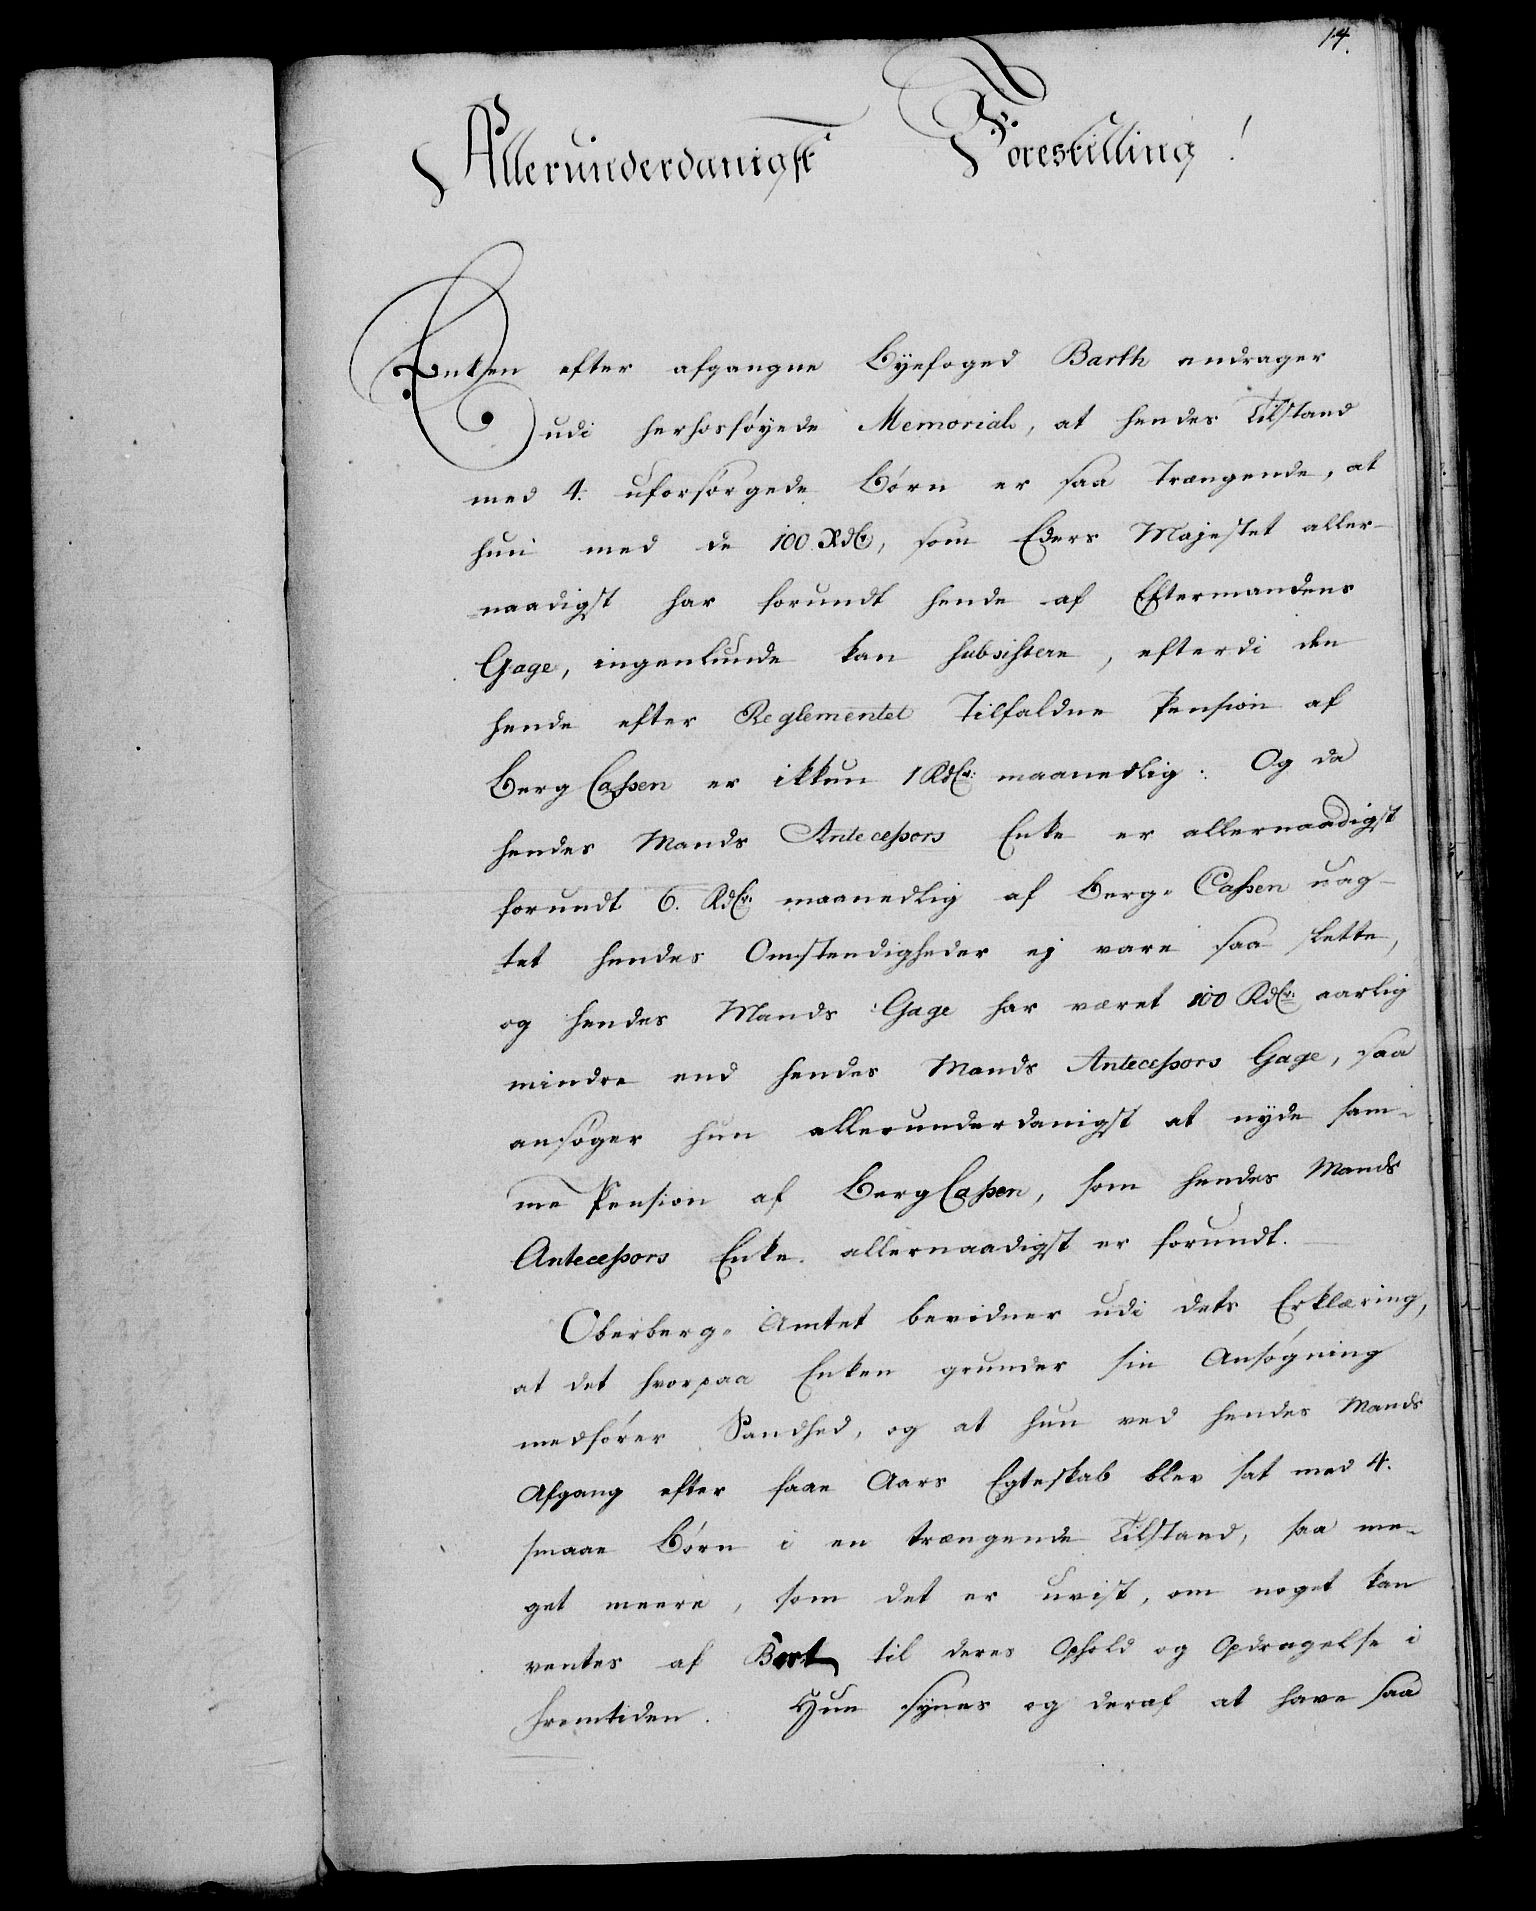 14.
Allerunderdanigst Forestilling!
Enken efter afgangne Byefoged Barth andrager
udi herhosføyede Memorial, at hendes Tilstand
med 4. uforsørgede Børn er saa trængende, at
hun med de 100 Rdlr, som Eders Majestet aller-
naadigst har forundt hende af Eftermandens
Gage, ingenlunde kan subsistere, efterdi den
hende efter Reglementet tilfaldne Pension af
Berg Cassen er ikkun 1 Rdlr: maanedlig: Og da
hendes Mands Antecessors Enke er allernaadigst
forundt 6. Rdlr: maanedlig af Berg-Cassen uag-
tet hendes Omstendigheder ej vare saa slette,
og hendes Mands Gage har været 100 Rdlr: aarlig
mindre end hendes Mands Antecessors Gage, saa
ansøger hun allerunderdanigst at nyde sam-
me Pension af Berg Cassen, som hendes Mands
Antecessors Enke allernaadigst er forundt.
Oberberg-Amtet bevidner udi dets Erklæring,
at det hvorpaa Enken grunder sin Ansøgning
medfører Sandhed, og at hun ved hendes Mands
Afgang efter faae Aars Egteskab blev sat med 4.
smaae Børn i en trængende Tilstand, saa me-
get meere, som det er uvist, om noget kan
ventes af Boet til deres Ophold og Opdragelse i
Fremtiden. Hun synes og deraf at have saa